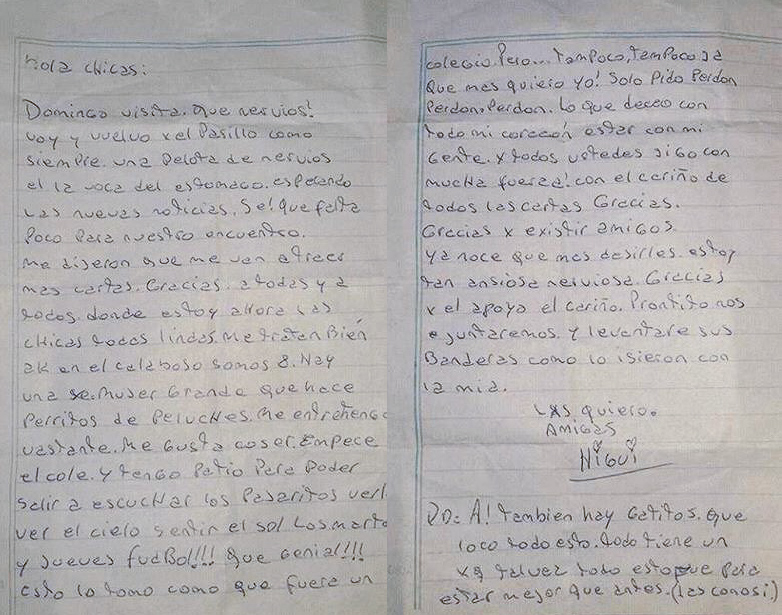 hola chicas:
Domingo visita. Que nervios!
voy y vuelvo x el Pasillo como
siempre. una Pelota de nervios
el la voca del estomago. esperando
Las nuevas noticias. Se! que falta
Poco Para nuestro encuentro.
me dijeron que me van atraer
mas cartas. Gracias. a todas y a
todos. donde estoy ahora Las
chicas todas lindas. Me tratan Bien
ak en el calaboso somos 8. Hay
una mujer Grande que hace
Perritos de Peluches. Me entretengo
vastante. Me Gusta coser. Empece
el cole. y tengo Patio Para Poder
salir a escuchar los Pajaritos
ver el cielo sentir el sol Los marte
y Jueves fudbol!!! Que Genial!!!
Esto lo tomo como que fuera un
colegio. Pero... tampoco, tampoco ja
Que mas quiero yo! Solo Pido Perdon
Perdon, Perdon. Lo que deceo con
todo mi corazón estar con mi
Gente. x todos ustedes sigo con
mucha fuerza! con el cariño de
todos las cartas Gracias.
Gracias x existir amigos.
ya noce que mas desirles. estoy
tan ansiosa nerviosa. Gracias
x el apoyo el cariño. Prontito nos
ejuntaremos. y leventare sus
Banderas como lo isieron con
la mia.
Las quiero.
Amigas
Higui
PD: A! tambien hay Gatitos. que
loco todo esto. todo tiene un
xq talvez todo esto fue Para
estar mejor que antes. (las conosi)